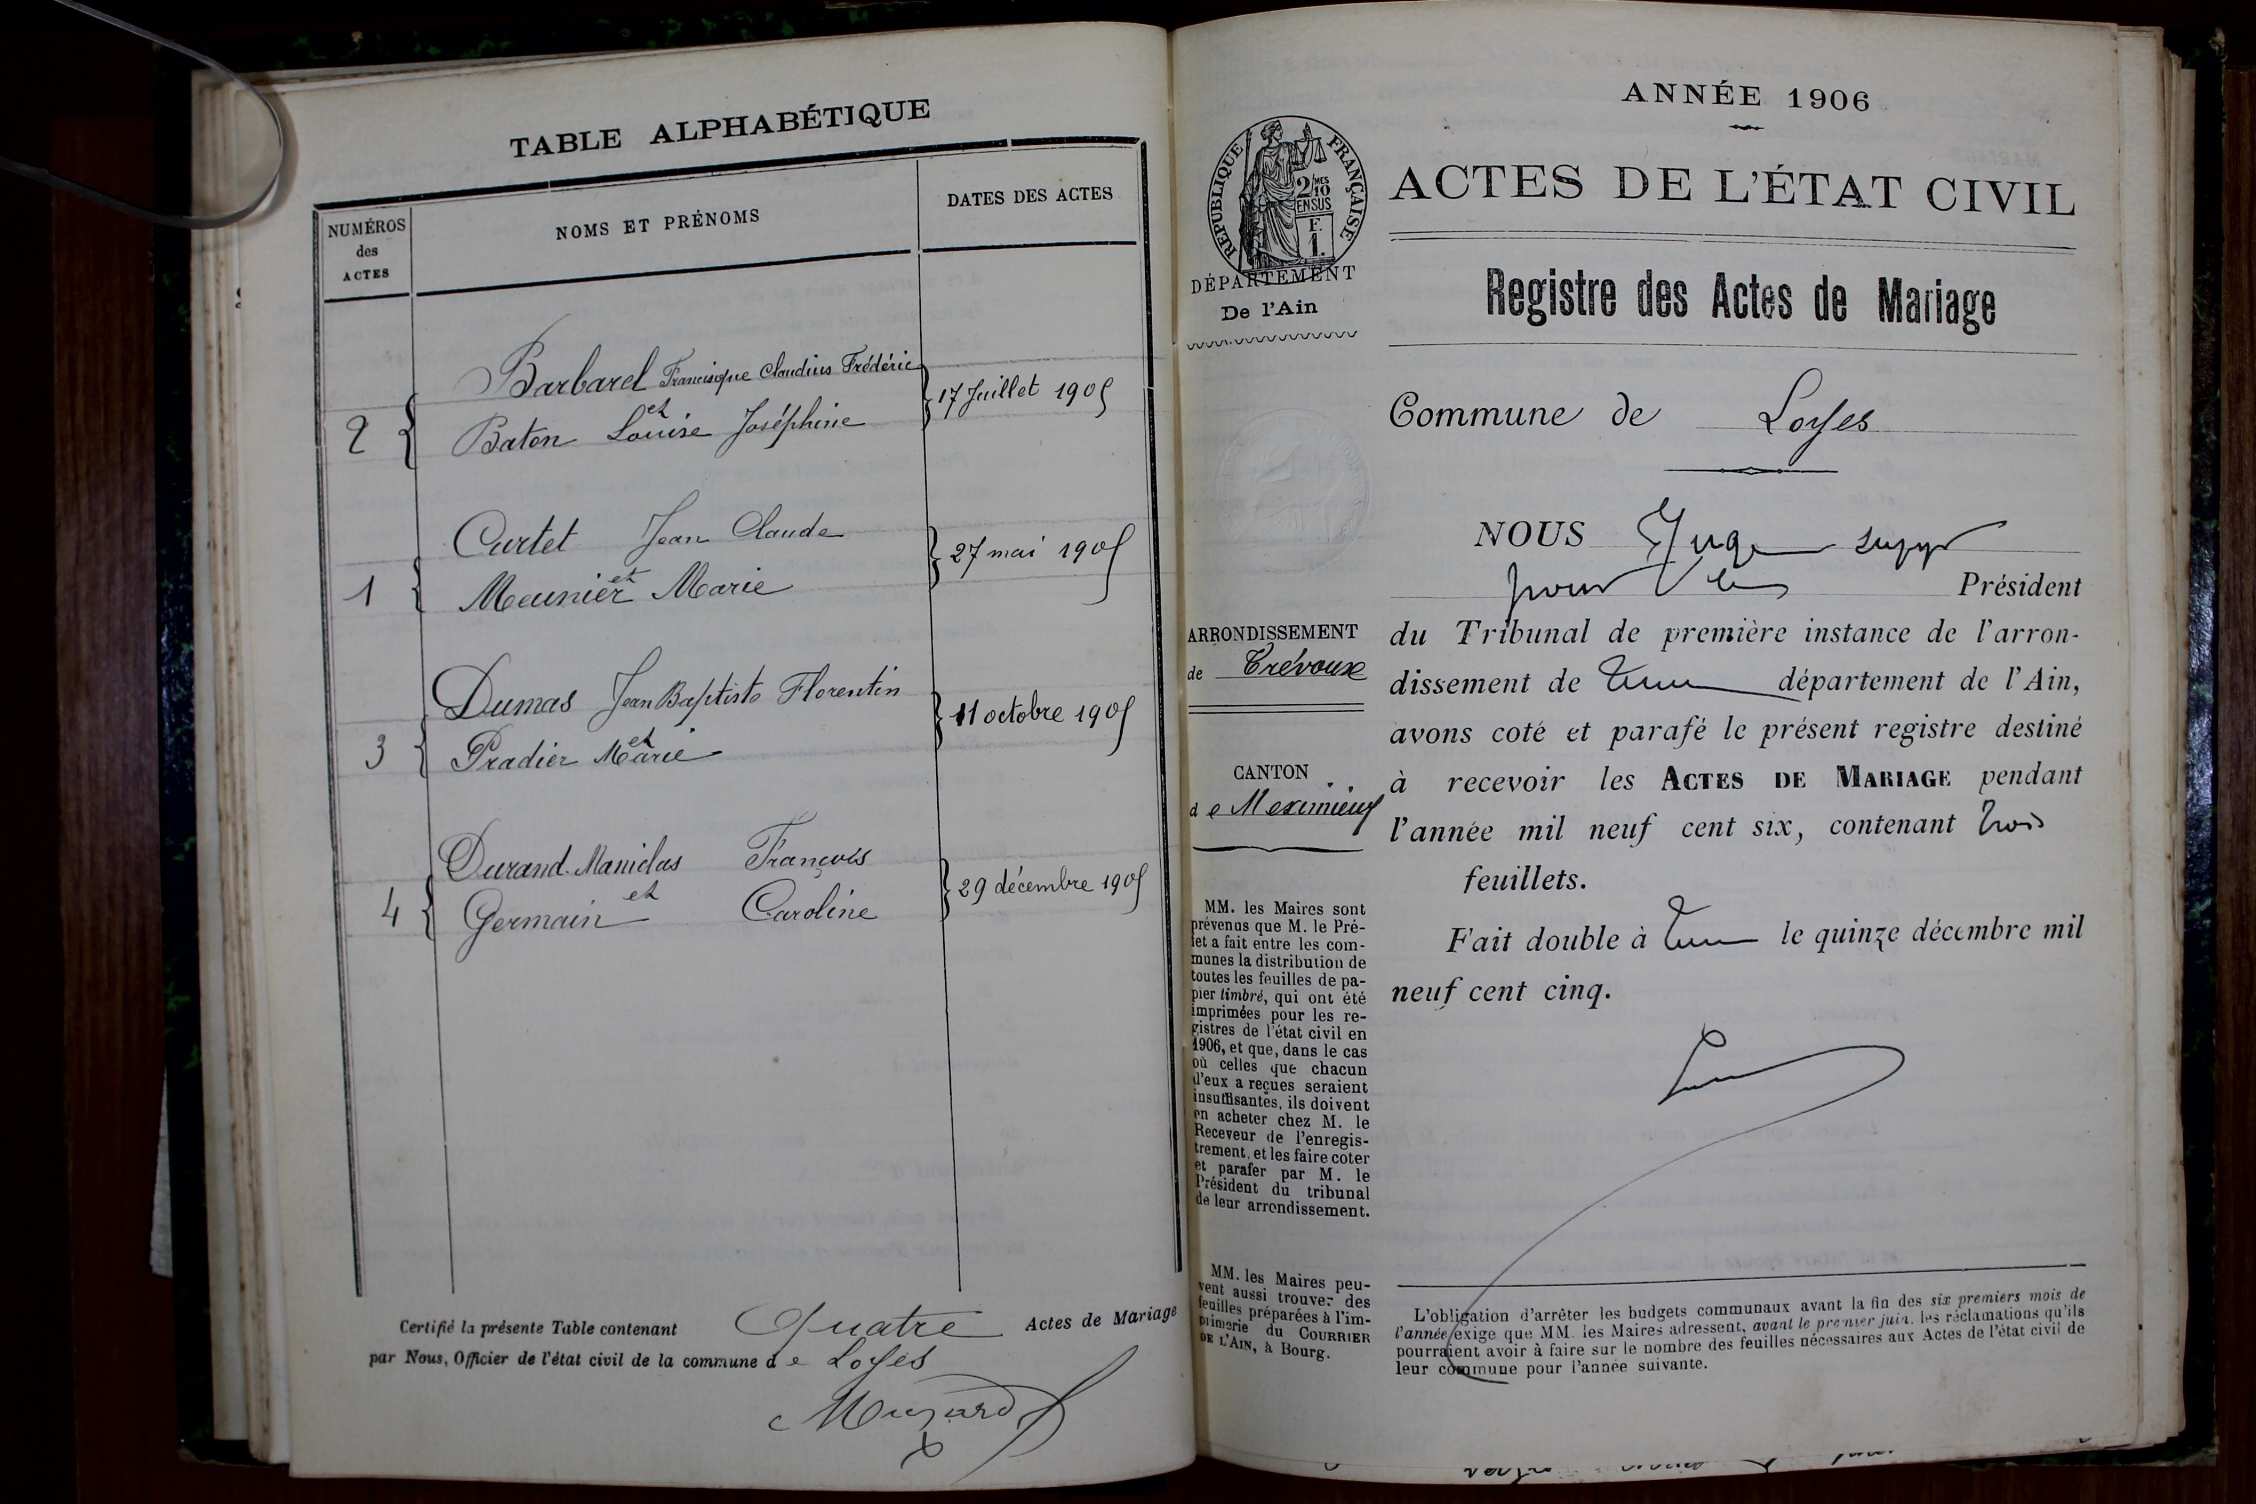 TABLE ALPHABÉTIQUE
NUMÉROS
des
ACTES
NOMS ET PRÉNOMS
DATES DES ACTES
Barbarel Francisque Claudius Frédéric
2 et 17 Juillet 1905
Baton Louise Joséphine
Curtet Jean Claude
1 et 27 mai 1905
Meunier Marie
Dumas Jean Baptiste Florentin
3 et 11 octobre 1905
Pradier Marie
Durand Maniclas François
4 et 29 décembre 1905
Germain Caroline
Certifié la présente Table contenant Quatre Actes de Mariage
par Nous, Officier de l'état civil de la commune de Loyes
RÉPUBLIQUE FRANÇAISE
2/10 MES
EN SUS
F.
1.
DÉPARTEMENT
De l'Ain
ARRONDISSEMENT
de Trévoux
CANTON
de Meximieux
MM. les Maires sont
prévenus que M. le Pré-
fet a fait entre les com-
munes la distribution de
toutes les feuilles de pa-
pier timbré, qui ont été
imprimées pour les re-
gistres de l'état civil en
1906, et que, dans le cas
où celles que chacun
d'eux a reçues seraient
insuffisantes, ils doivent
en acheter chez M. le
Receveur de l'enregis-
trement, et les faire coter
et parafer par M. le
Président du tribunal
de leur arrondissement.
MM. les Maires peu-
vent aussi trouver des
feuilles préparées à l'im-
primerie du COURRIER
DE L'AIN, à Bourg.
ANNÉE 1906
ACTES DE L'ÉTAT CIVIL
Registre des Actes de Mariage
Commune de Loyes
NOUS Juge
pour le Président
du Tribunal de première instance de l'arron-
dissement de département de l'Ain,
avons coté et parafé le présent registre destiné
à recevoir les ACTES DE MARIAGE pendant
l'année mil neuf cent six, contenant trois
feuillets.
Fait double à le quinze décembre mil
neuf cent cinq.
L'obligation d'arrêter les budgets communaux avant la fin des six premiers mois de
l'année exige que MM. les Maires adressent, avant le premier juin, les réclamations qu'ils
pourraient avoir à faire sur le nombre des feuilles nécessaires aux Actes de l'état civil de
leur commune pour l'année suivante.